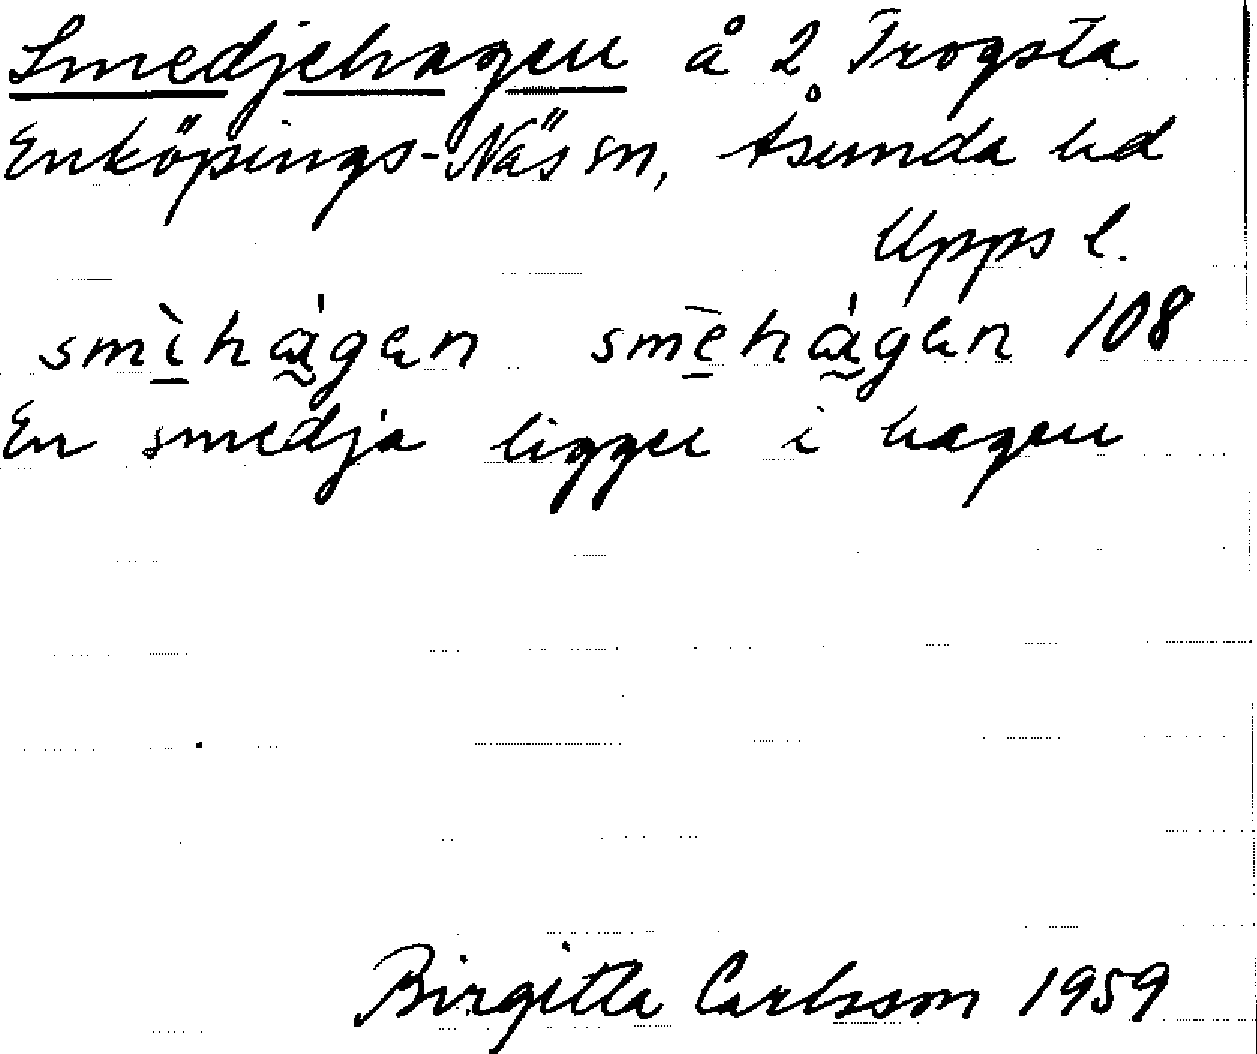 Smedjehagen å 2 Trogsta
Enköpings-Näs sn, Åsunda hd
Upps l.
smìhágen smèhágen 108
En smedja ligger i hagen
Birgitta Carlsson 1959